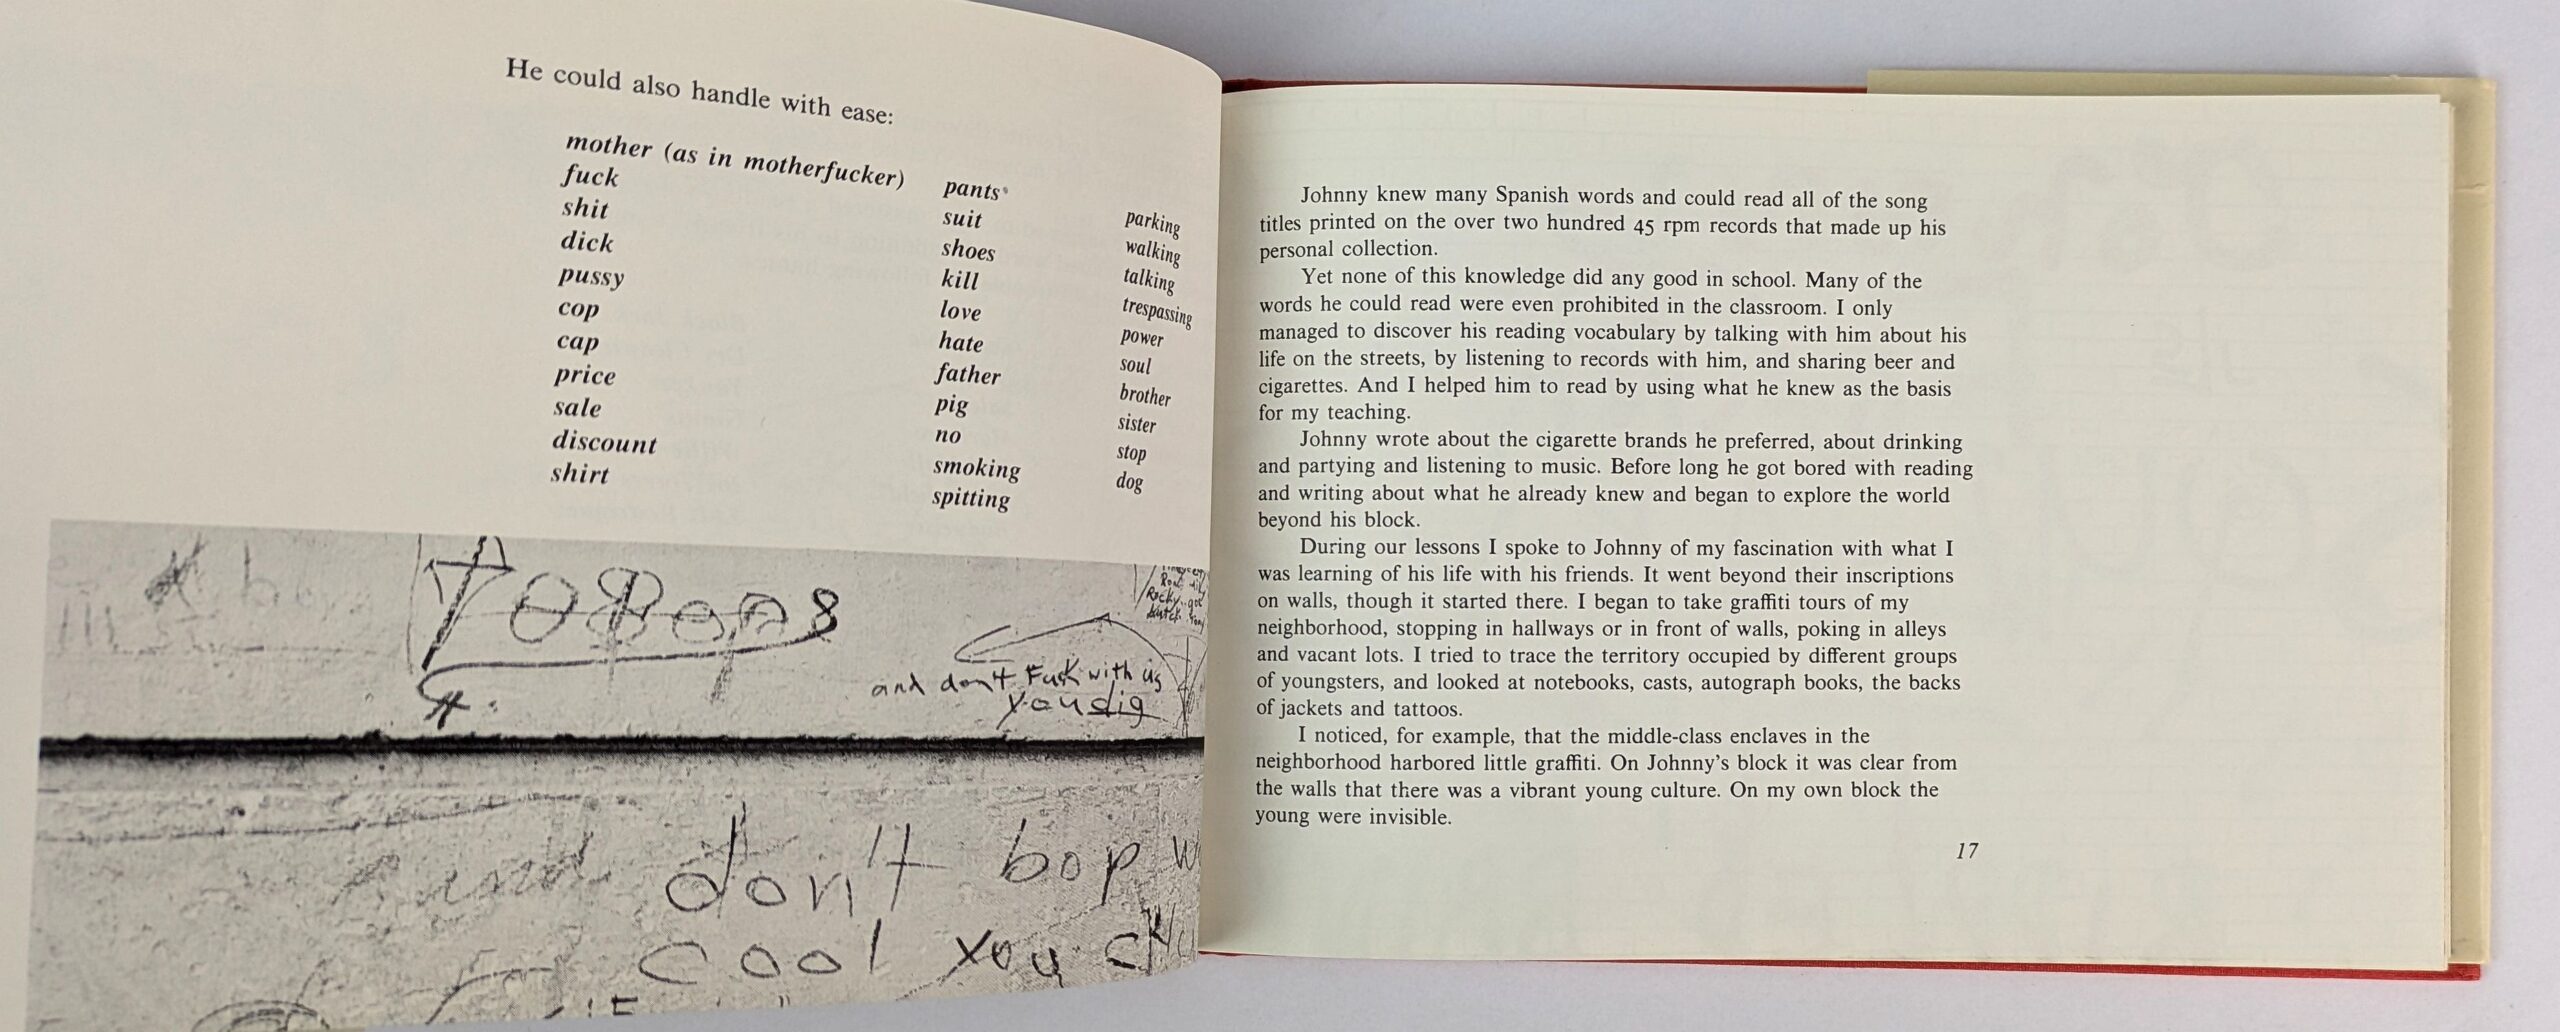 He could also handle with ease:
mother (as in motherfucker)
fuck
shit
dick
pussy
cop
cap
price
sale
discount
shirt
pants
suit
shoes
kill
love
hate
father
pig
no
smoking
spitting
parking
walking
talking
trespassing
power
soul
brother
sister
stop
dog
and don't Fuck with us
you dig
and don't bop
cool you
Johnny knew many Spanish words and could read all of the song
titles printed on the over two hundred 45 rpm records that made up his
personal collection.
Yet none of this knowledge did any good in school. Many of the
words he could read were even prohibited in the classroom. I only
managed to discover his reading vocabulary by talking with him about his
life on the streets, by listening to records with him, and sharing beer and
cigarettes. And I helped him to read by using what he knew as the basis
for my teaching.
Johnny wrote about the cigarette brands he preferred, about drinking
and partying and listening to music. Before long he got bored with reading
and writing about what he already knew and began to explore the world
beyond his block.
During our lessons I spoke to Johnny of my fascination with what I
was learning of his life with his friends. It went beyond their inscriptions
on walls, though it started there. I began to take graffiti tours of my
neighborhood, stopping in hallways or in front of walls, poking in alleys
and vacant lots. I tried to trace the territory occupied by different groups
of youngsters, and looked at notebooks, casts, autograph books, the backs
of jackets and tattoos.
I noticed, for example, that the middle-class enclaves in the
neighborhood harbored little graffiti. On Johnny's block it was clear from
the walls that there was a vibrant young culture. On my own block the
young were invisible.
17